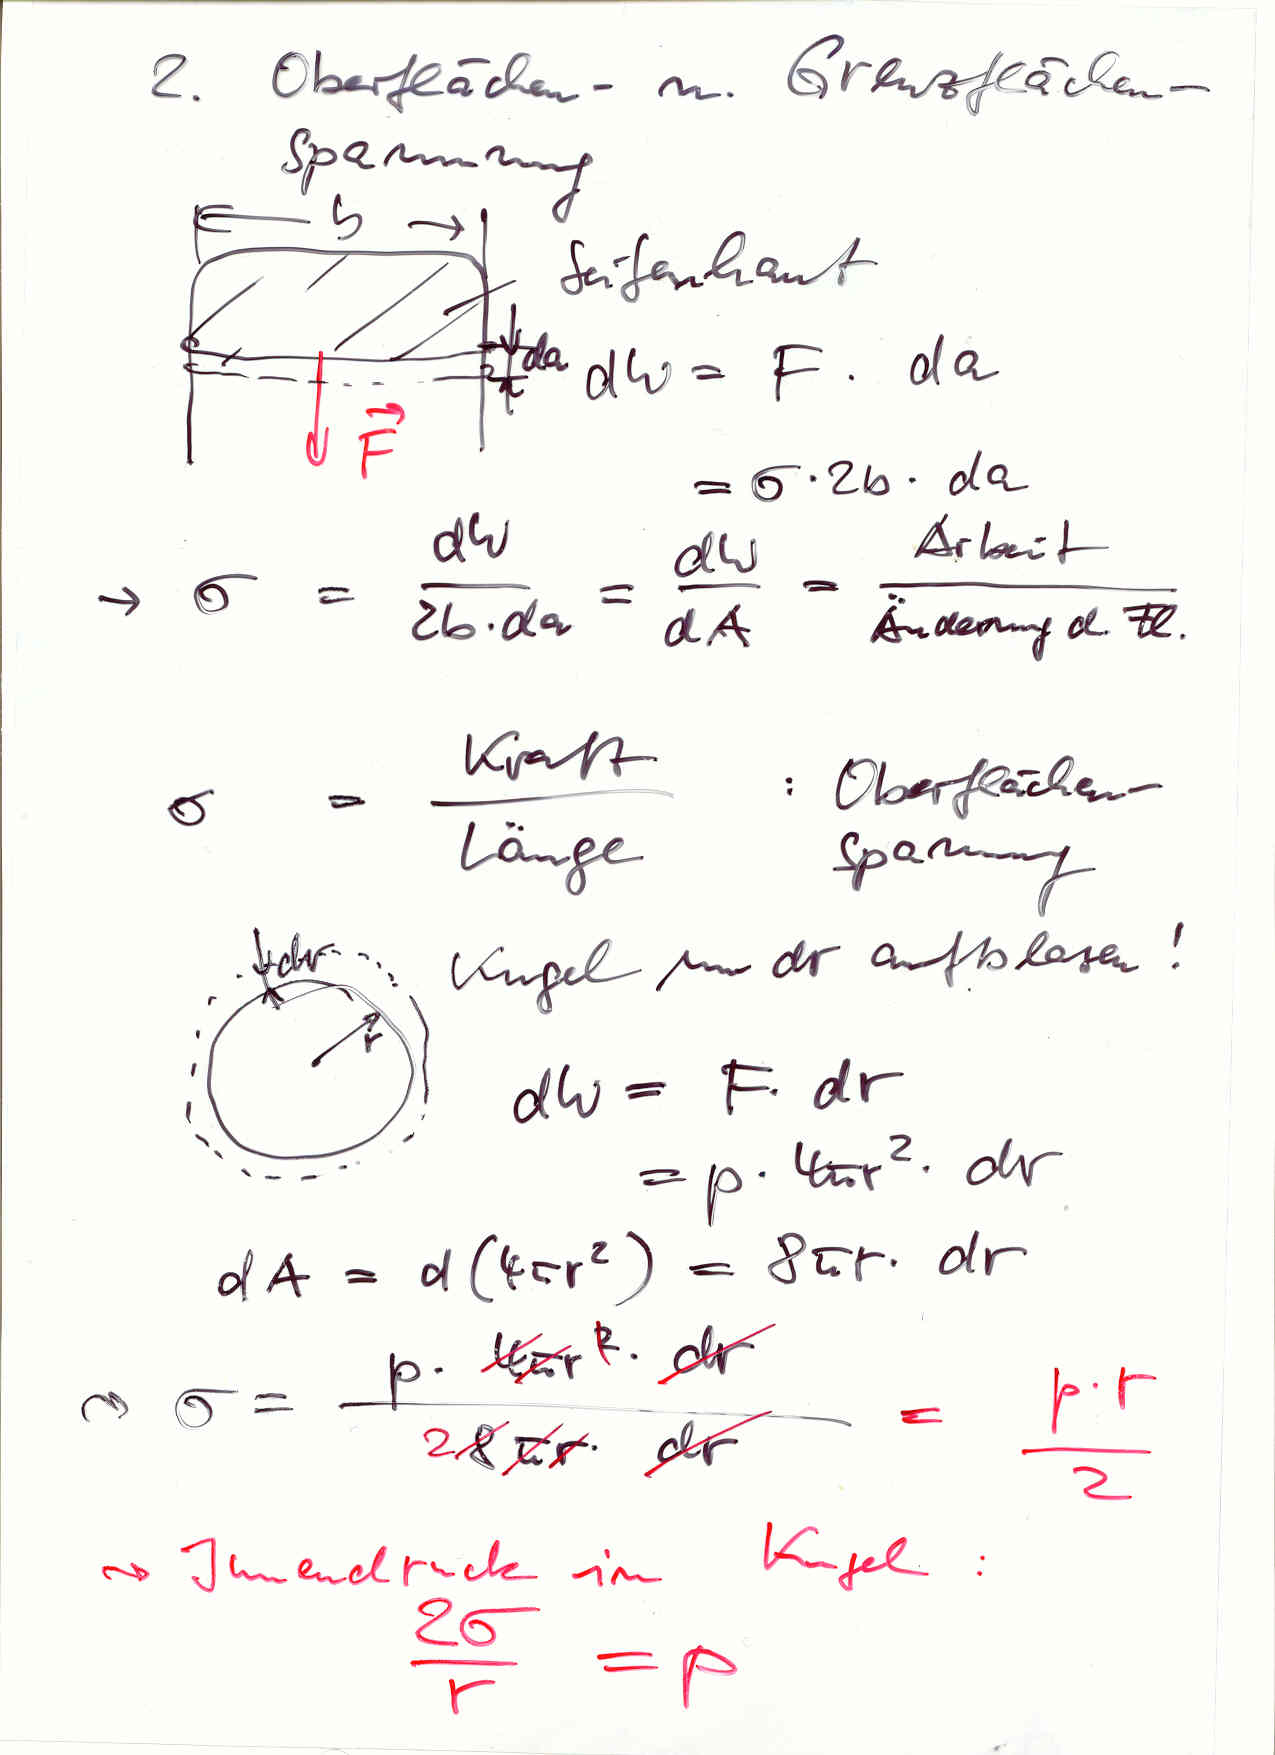 2. Oberflächen- u. Grenzflächen-
spannung
b
Seifenhaut
da
dW = F · da
F
= σ · 2b · da
→ σ = dW / 2b · da = dW / dA = Arbeit / Änderung d. Fl.
σ = Kraft / Länge : Oberflächen-
spannung
dr
Kugel um dr aufblasen!
r
dW = F · dr
= p · 4πr² · dr
dA = d(4πr²) = 8πr · dr
⇝ σ = p · 4πr² · dr / 2 8πr · dr = p · r / 2
⇝ Innendruck in Kugel :
2σ / r = p